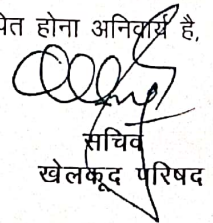 होना अनिवार्य है,
सचिव
खेलकूद परिषद